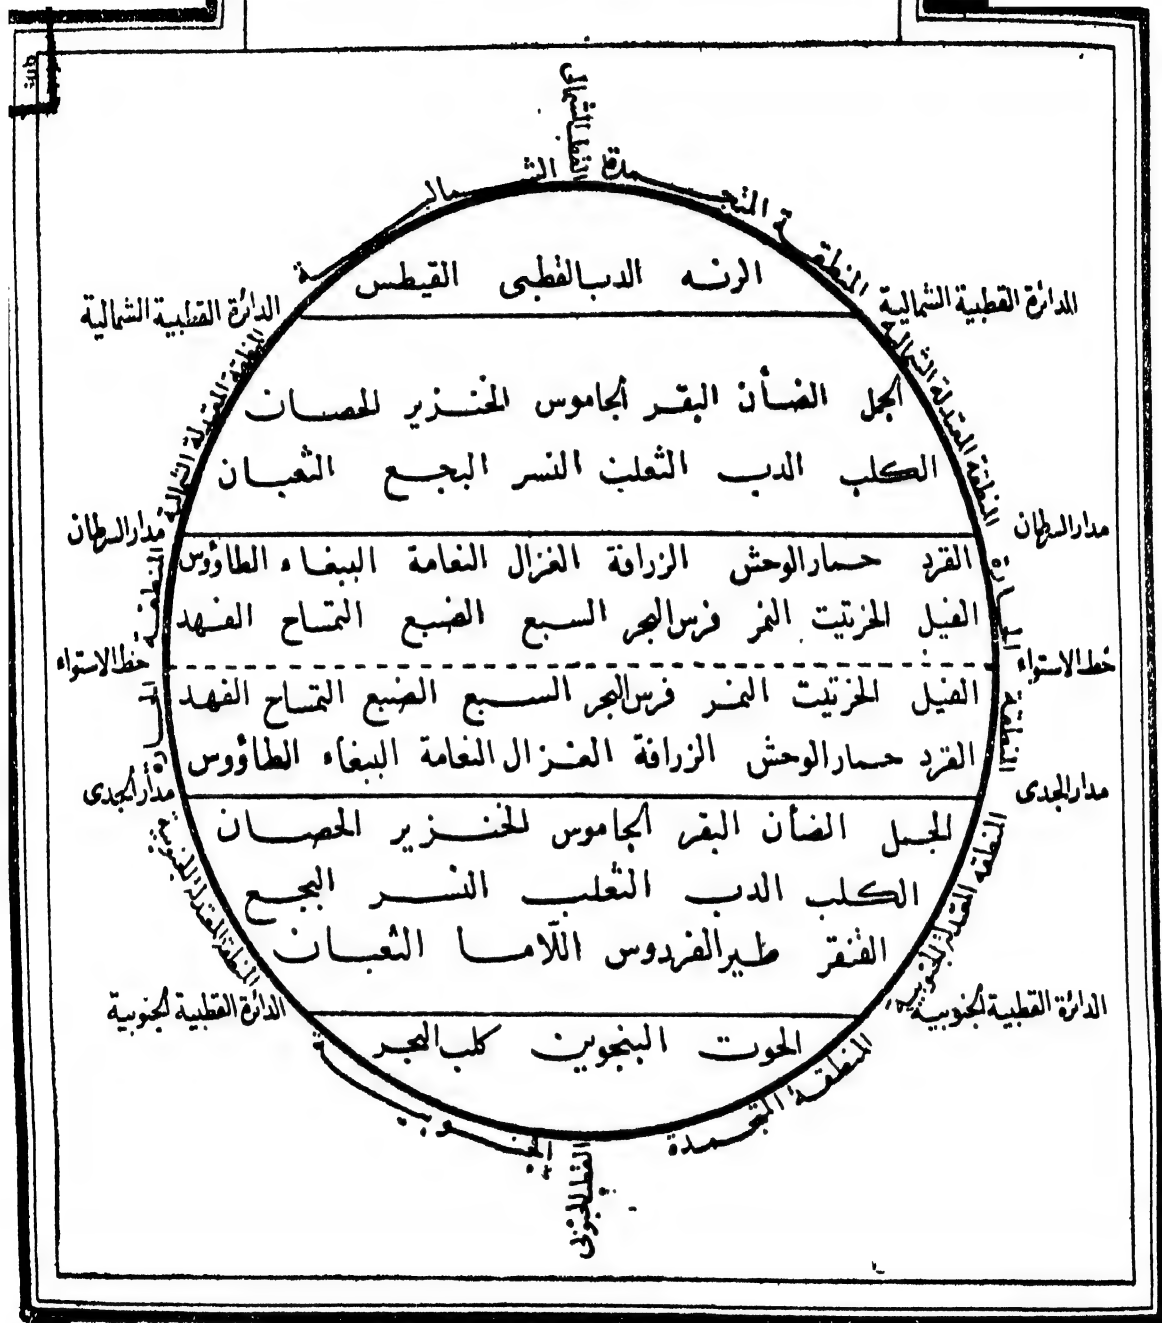 القطب الشمالي
المنطقة المتجمدة الشمالية
الرنه الدب القطبى القيطس
الدائرة القطبية الشمالية
الدائرة القطبية الشمالية
المنطقة المعتدلة الشمالية
المنطقة المعتدلة الشمالية
الجمل الضأن البقر الجاموس الخنزير الحصان
الكلب الدب الثعلب النسر البجع الثعبان
مدار السرطان
مدار السرطان
القرد حمار الوحش الزرافة الغزال النعامة الببغاء الطاؤوس
الفيل الخرتيت النمر فرس البحر السبع الضبع التمساح الفهد
المنطقة الحارة
المنطقة الحارة
خط الاستواء
خط الاستواء
الفيل الخرتيت النمر فرس البحر السبع الضبع التمساح الفهد
القرد حمار الوحش الزرافة الغزال النعامة الببغاء الطاؤوس
مدار الجدى
مدار الجدى
المنطقه المعتدلة الجنوبية
المنطقة المعتدلة الجنوبية
الجمل الضأن البقر الجاموس الخنزير الحصان
الكلب الدب الثعلب النسر البجع
القنقر طير الفردوس اللاما الثعبان
الدائرة القطبية الجنوبية
الدائرة القطبية الجنوبية
الحوت البنجوين كلب البحر
المنطقة المتجمدة الجنوبية
القطب الجنوبى